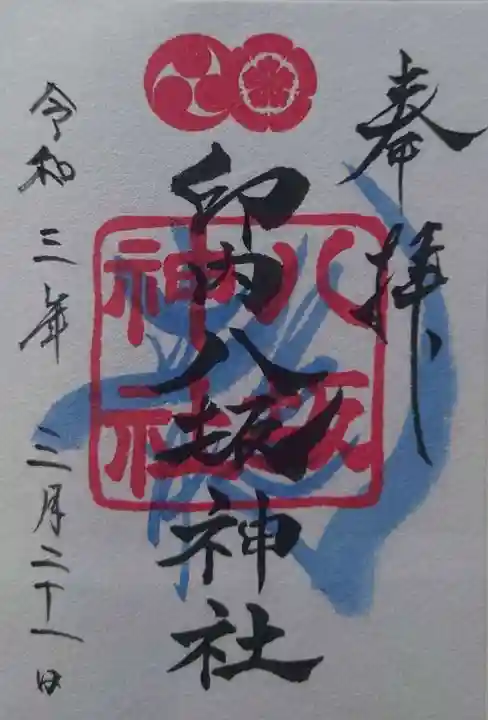 奉拝
印内八坂神社
八坂神社
令和三年三月二十一日